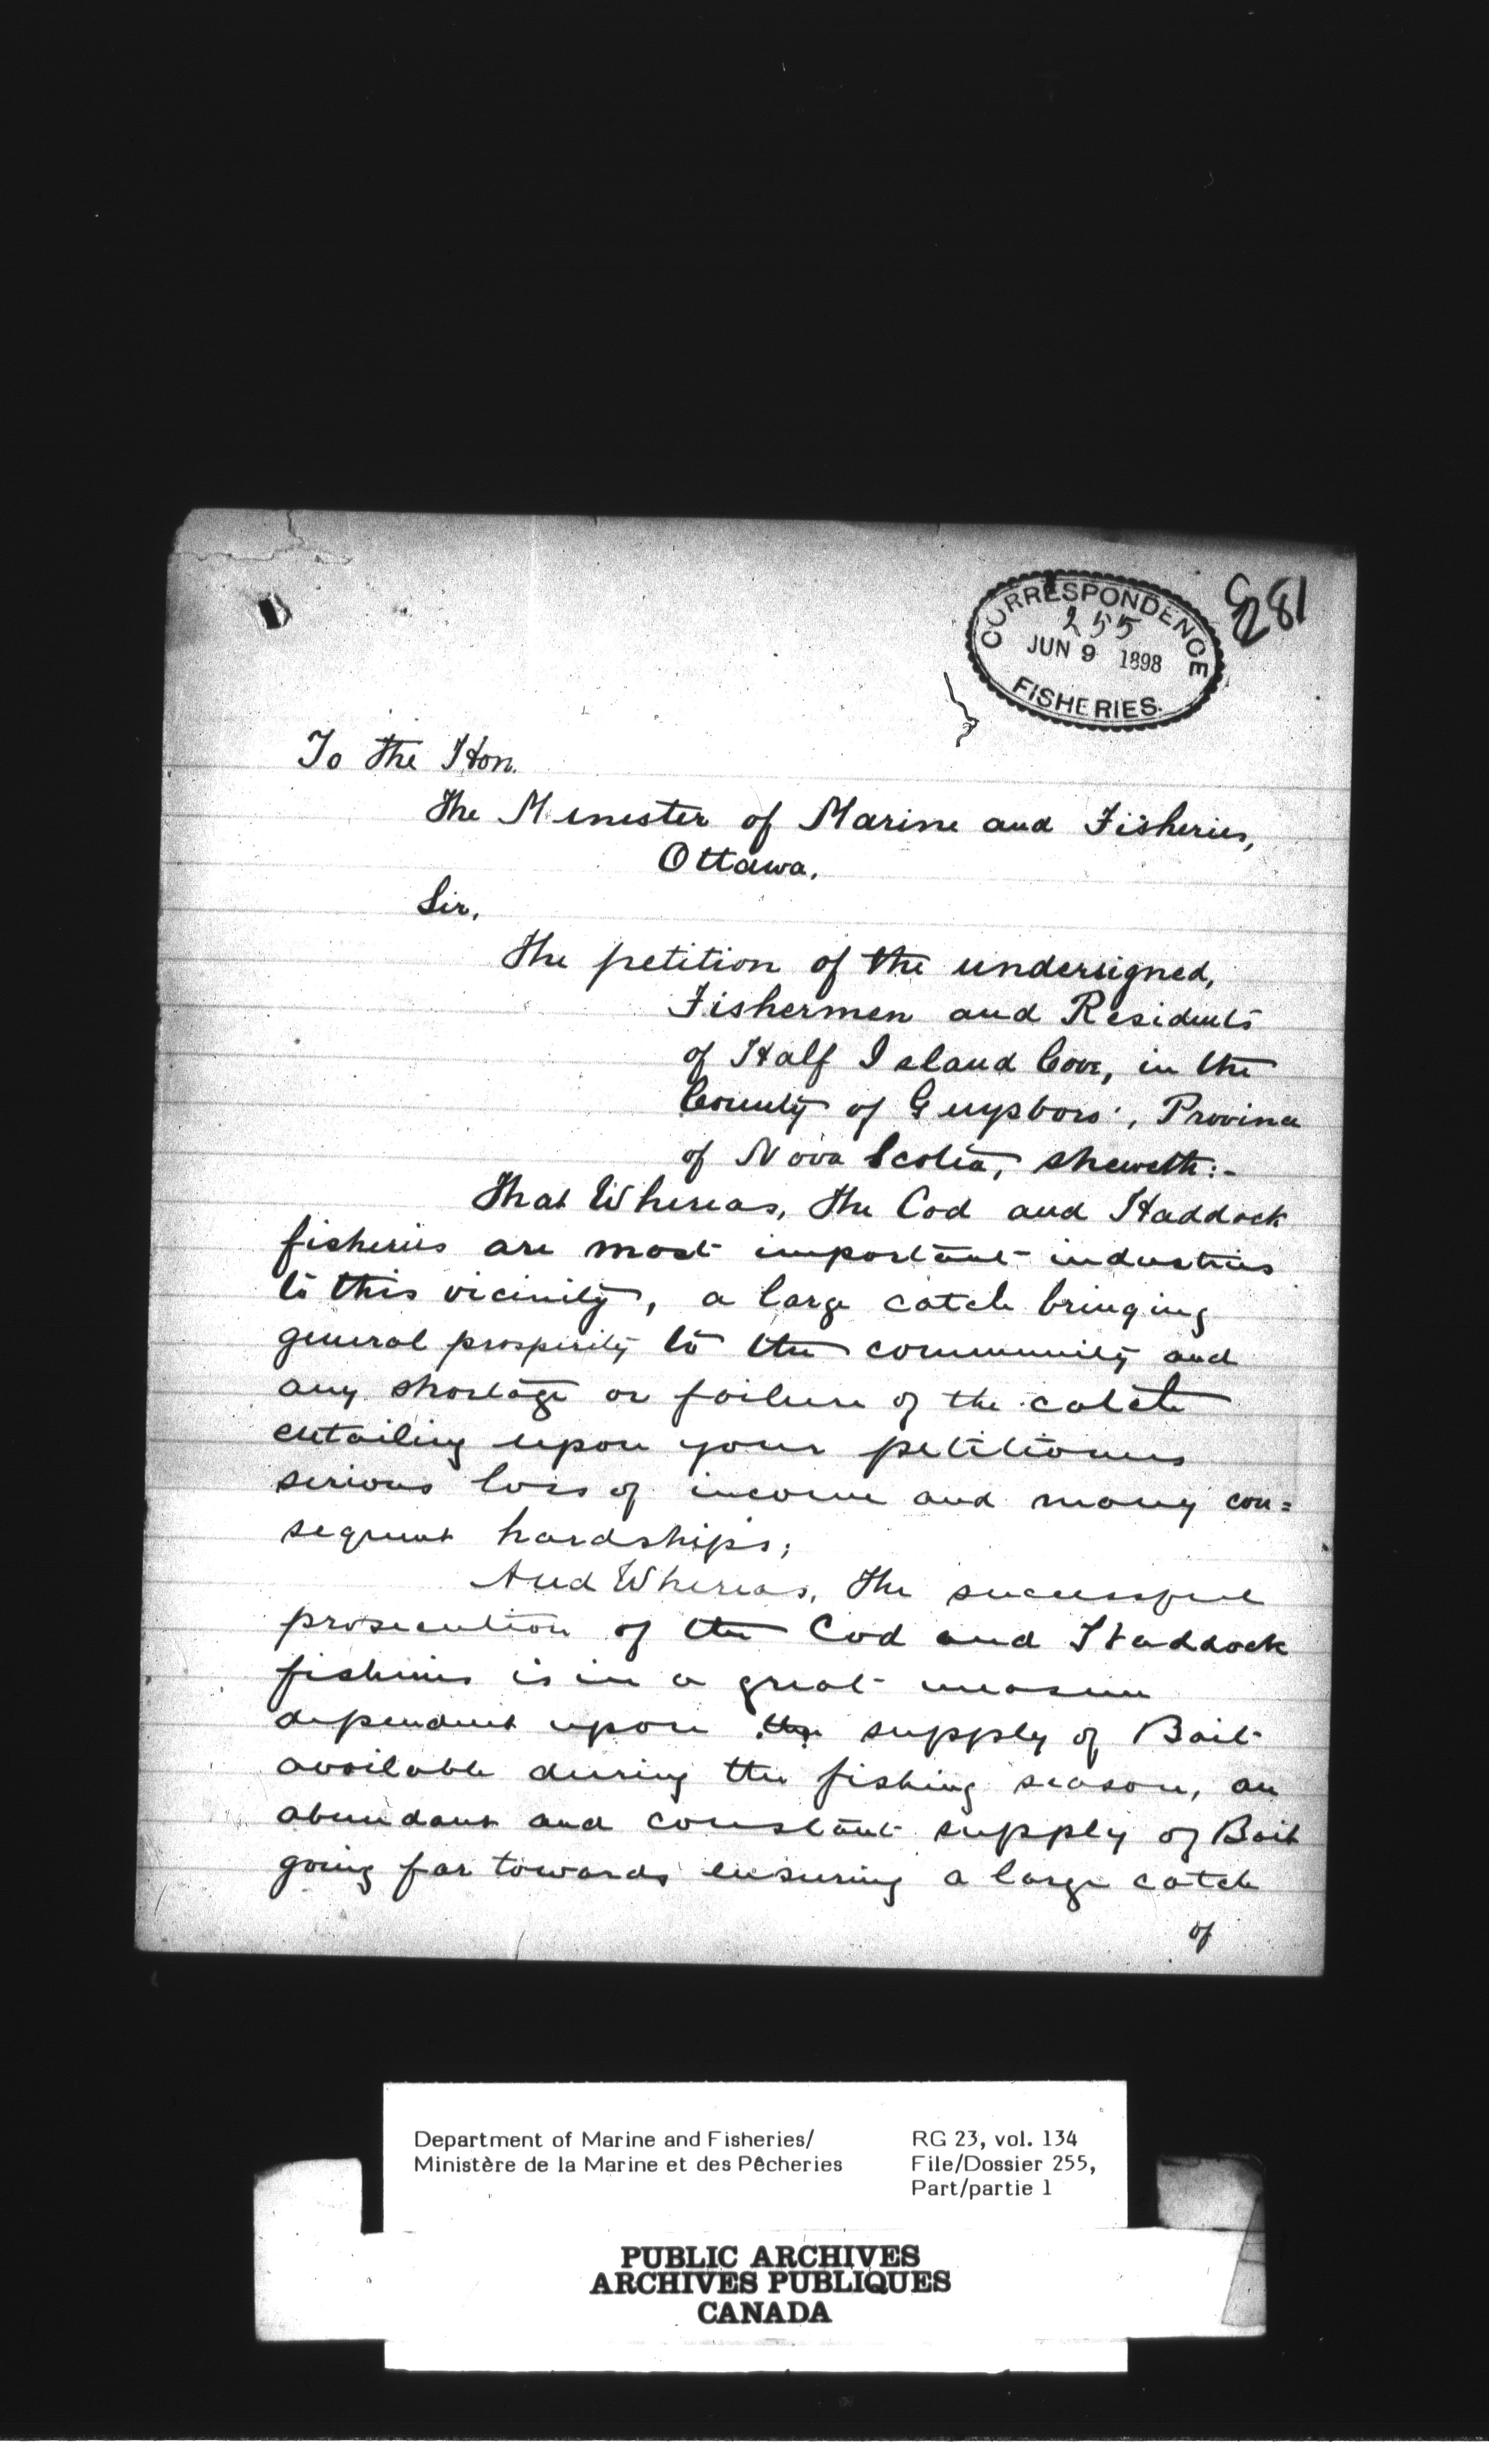 CORRESPONDENCE
255
JUN 9 1898
FISHERIES.
281
To the Hon.
The Minister of Marine and Fisheries,
Ottawa.
Sir,
The petition of the undersigned,
Fishermen and Residents
of Half Island Cove, in the
County of Guysboro', Province
of Nova Scotia, sheweth:-
That Whereas, the Cod and Haddock
fisheries are most important industries
to this vicinity, a large catch bringing
general prosperity to the community and
any shortage or failure of the catch
entailing upon your petitioners
serious loss of income and many con=
sequent hardships;
And Whereas, the successful
prosecution of the Cod and Haddock
fisheries is in a great measure
dependent upon the supply of Bait
available during the fishing season, an
abundant and constant supply of Bait
going far towards ensuring a large catch
of
Department of Marine and Fisheries/
Ministère de la Marine et des Pêcheries
RG 23, vol. 134
File/Dossier 255,
Part/partie 1
PUBLIC ARCHIVES
ARCHIVES PUBLIQUES
CANADA